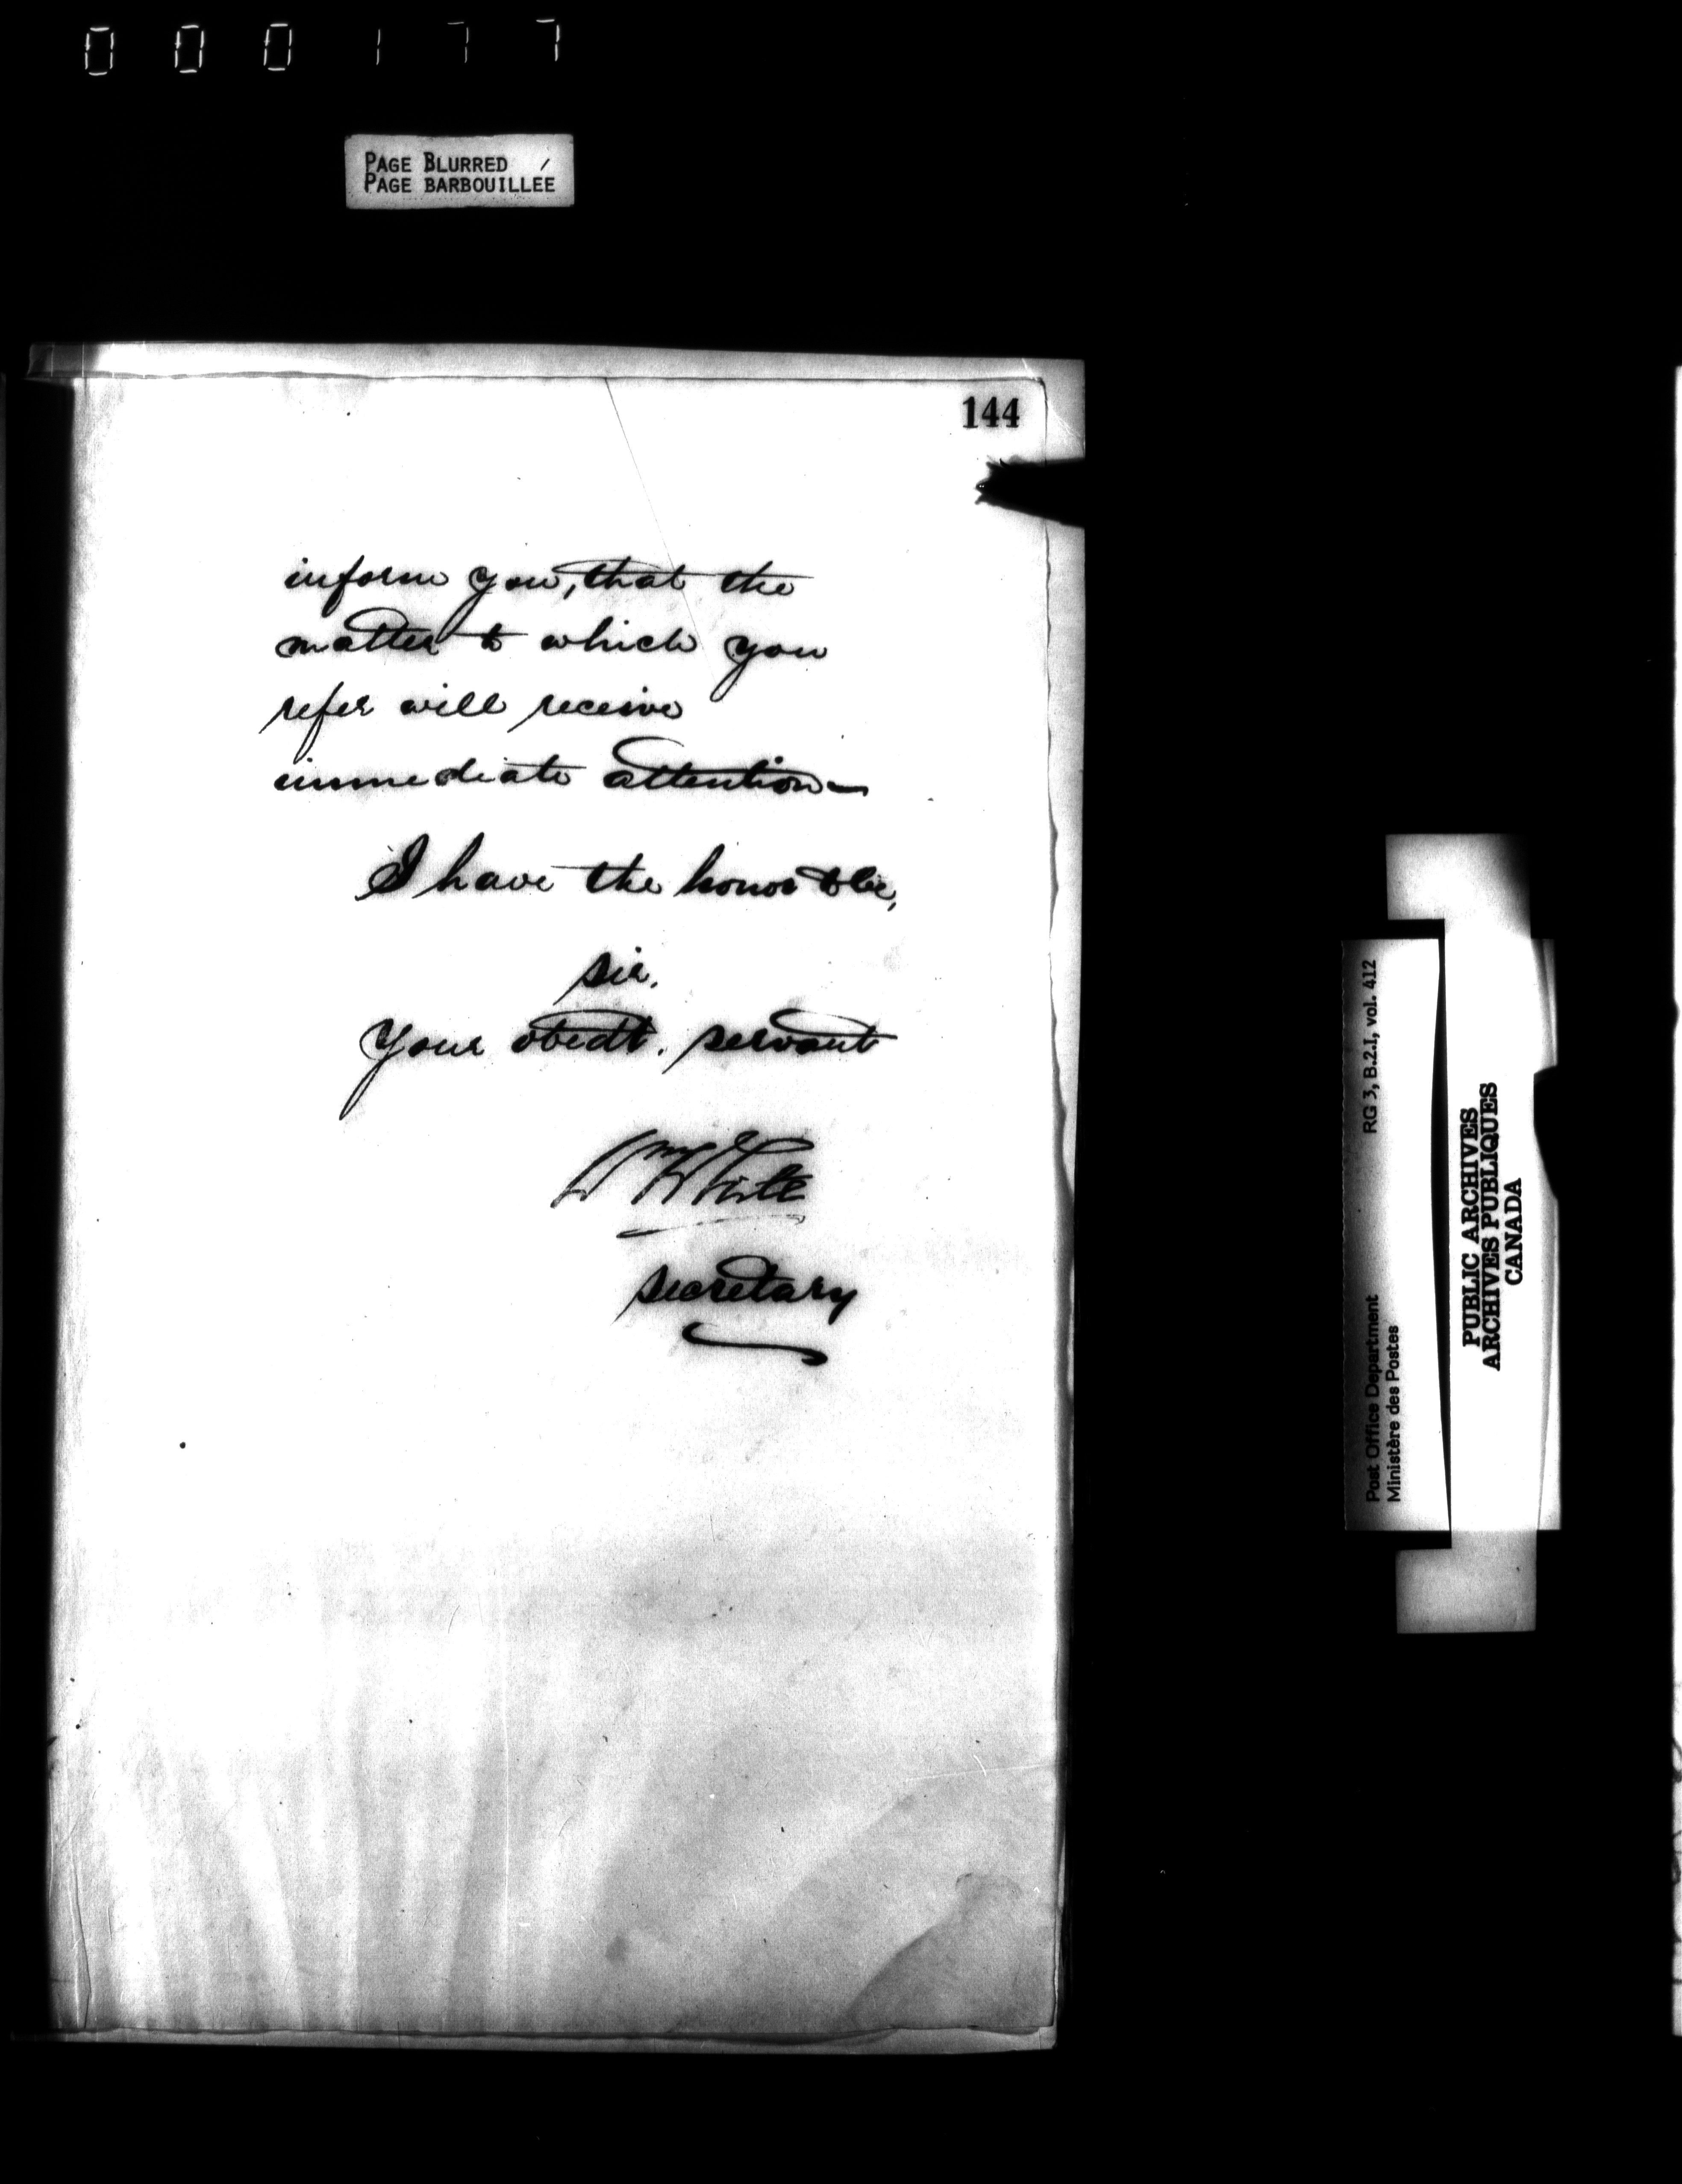 000177
PAGE BLURRED
PAGE BARBOUILLÉE
144
inform you, that the
matter to which you
refer will receive
immediate attention—
I have the honor to be,
sir,
Your obedt. servant
Wm White
secretary
Post Office Department RG 3, B.2.I, vol. 412
Ministère des Postes
PUBLIC ARCHIVES
ARCHIVES PUBLIQUES
CANADA